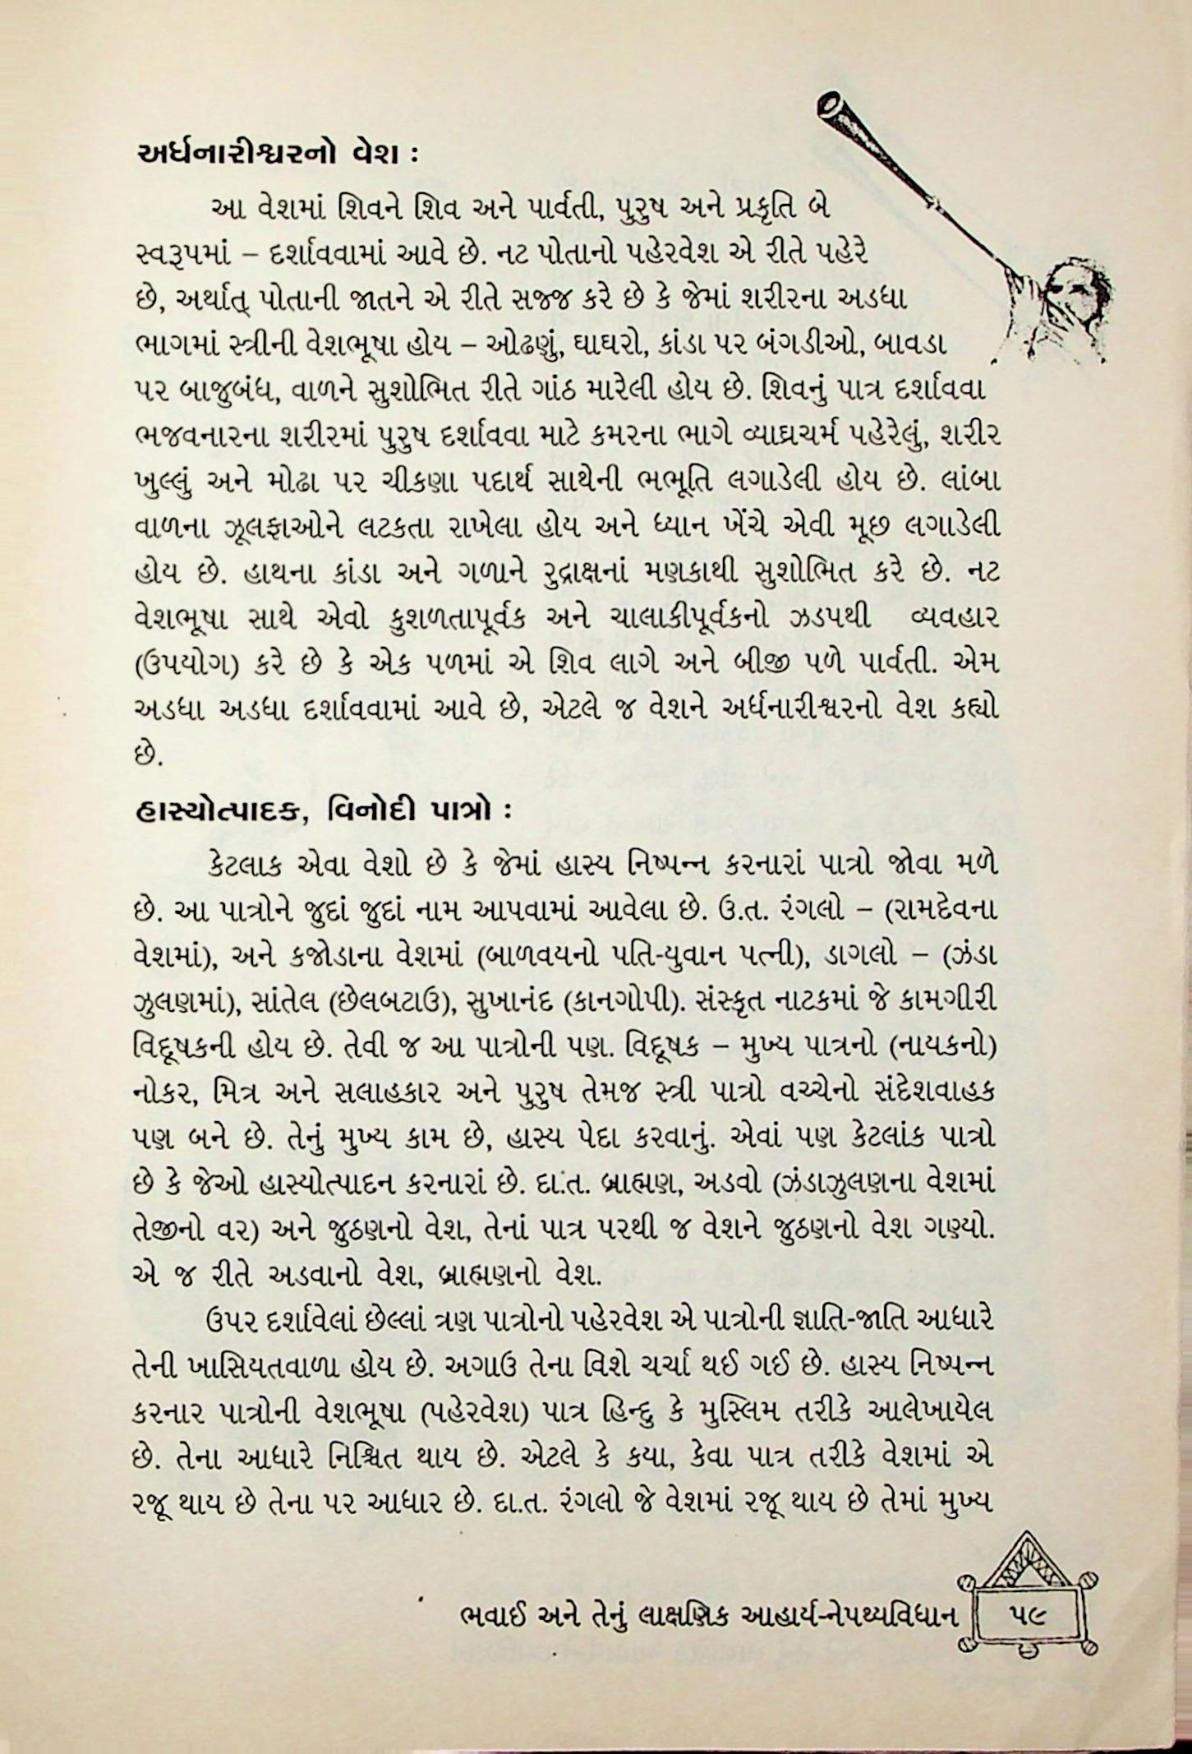 અર્ધનારીશ્વરનો વેશ :
આ વેશમાં શિવને શિવ અને પાર્વતી, પુરુષ અને પ્રકૃતિ બે
સ્વરૂપમાં – દર્શાવવામાં આવે છે. નટ પોતાનો પહેરવેશ એ રીતે પહેરે
છે, અર્થાત્ પોતાની જાતને એ રીતે સજ્જ કરે છે કે જેમાં શરીરના અડધા
ભાગમાં સ્ત્રીની વેશભૂષા હોય – ઓઢણું, ઘાઘરો, કાંડા પર બંગડીઓ, બાવડા
પર બાજુબંધ, વાળને સુશોભિત રીતે ગાંઠ મારેલી હોય છે. શિવનું પાત્ર દર્શાવવા
ભજવનારના શરીરમાં પુરુષ દર્શાવવા માટે કમરના ભાગે વ્યાઘ્રચર્મ પહેરેલું, શરીર
ખુલ્લું અને મોઢા પર ચીકણા પદાર્થ સાથેની ભભૂતિ લગાડેલી હોય છે. લાંબા
વાળના ઝૂલફાઓને લટકતા રાખેલા હોય અને ધ્યાન ખેંચે એવી મૂછ લગાડેલી
હોય છે. હાથના કાંડા અને ગળાને રુદ્રાક્ષનાં મણકાથી સુશોભિત કરે છે. નટ
વેશભૂષા સાથે એવો કુશળતાપૂર્વક અને ચાલાકીપૂર્વકનો ઝડપથી વ્યવહાર
(ઉપયોગ) કરે છે કે એક પળમાં એ શિવ લાગે અને બીજી પળે પાર્વતી. એમ
અડધા અડધા દર્શાવવામાં આવે છે, એટલે જ વેશને અર્ધનારીશ્વરનો વેશ કહ્યો
છે.
હાસ્યોત્પાદક, વિનોદી પાત્રો :
કેટલાક એવા વેશો છે કે જેમાં હાસ્ય નિષ્પન્ન કરનારાં પાત્રો જોવા મળે
છે. આ પાત્રોને જુદાં જુદાં નામ આપવામાં આવેલા છે. ઉ.ત. રંગલો – (રામદેવના
વેશમાં), અને કજોડાના વેશમાં (બાળવયનો પતિ-યુવાન પત્ની), ડાગલો – (ઝંડા
ઝુલણમાં), સાંતેલ (છેલબટાઉ), સુખાનંદ (કાનગોપી). સંસ્કૃત નાટકમાં જે કામગીરી
વિદૂષકની હોય છે. તેવી જ આ પાત્રોની પણ. વિદૂષક – મુખ્ય પાત્રનો (નાયકનો)
નોકર, મિત્ર અને સલાહકાર અને પુરુષ તેમજ સ્ત્રી પાત્રો વચ્ચેનો સંદેશવાહક
પણ બને છે. તેનું મુખ્ય કામ છે, હાસ્ય પેદા કરવાનું. એવાં પણ કેટલાંક પાત્રો
છે કે જેઓ હાસ્યોત્પાદન કરનારાં છે. દા.ત. બ્રાહ્મણ, અડવો (ઝંડાઝુલણના વેશમાં
તેજીનો વર) અને જુઠણનો વેશ, તેનાં પાત્ર પરથી જ વેશને જુઠણનો વેશ ગણ્યો.
એ જ રીતે અડવાનો વેશ, બ્રાહ્મણનો વેશ.
ઉપર દર્શાવેલાં છેલ્લાં ત્રણ પાત્રોનો પહેરવેશ એ પાત્રોની જ્ઞાતિ-જાતિ આધારે
તેની ખાસિયતવાળા હોય છે. અગાઉ તેના વિશે ચર્ચા થઈ ગઈ છે. હાસ્ય નિષ્પન્ન
કરનાર પાત્રોની વેશભૂષા (પહેરવેશ) પાત્ર હિન્દુ કે મુસ્લિમ તરીકે આલેખાયેલ
છે. તેના આધારે નિશ્ચિત થાય છે. એટલે કે કયા, કેવા પાત્ર તરીકે વેશમાં એ
રજૂ થાય છે તેના પર આધાર છે. દા.ત. રંગલો જે વેશમાં રજૂ થાય છે તેમાં મુખ્ય
ભવાઈ અને તેનું લાક્ષણિક આહાર્ય-નેપથ્યવિધાન ૫૯